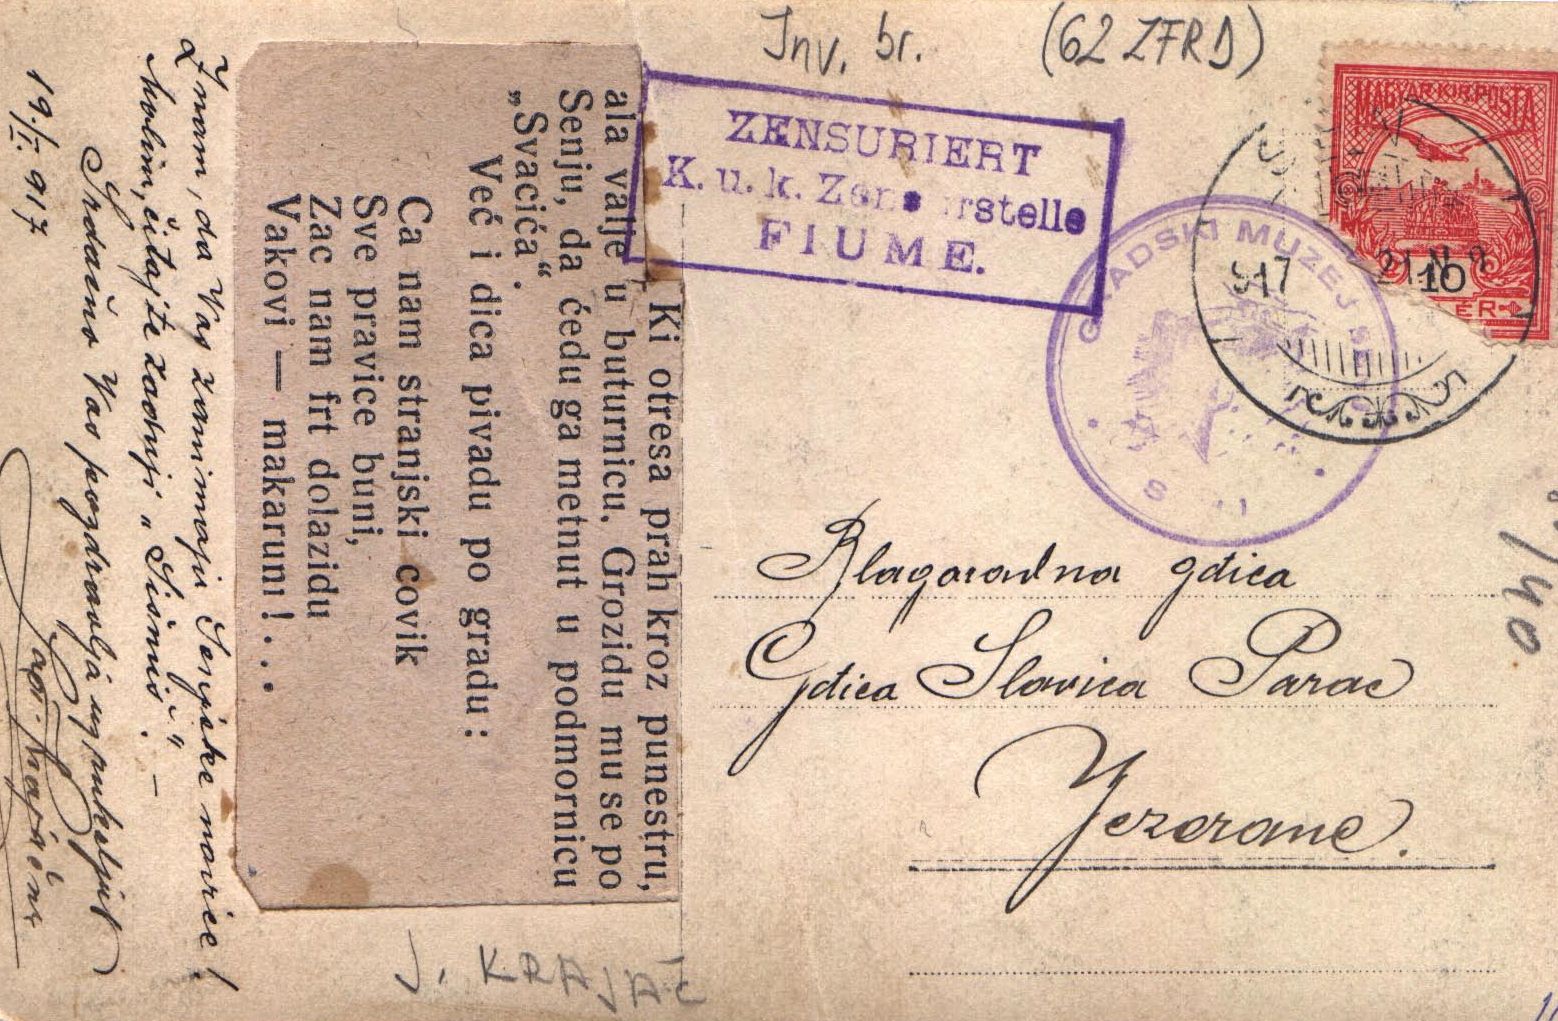 Inv. br. (62 ZFRD)
ZENSURIERT
K. u. k. Zens rstelle
FIUME.
MAGYAR KIR. POSTA
10
GRADSKI MUZEJ SE
S I
917
21
/40
Blagorodna gđica
Gđica Slavica Parac
Jezerane.
Ki otresa prah kroz punestru,
ala valje u buturnicu. Grozidu mu se po
Senju, da ćedu ga metnut u podmornicu
„Svačića“.
Već i dica pivadu po gradu:
Ca nam stranjski covik
Sve pravice buni,
Zac nam frt dolazidu
Vakovi — makaruni! . . .
Znam, da Vas zanimaju Senjske novice!
Molim, čitajte zadnji „Sismiš“. –
Srdačno Vas pozdravlja uz rukoljub
19./I. 917
J. KRAJAČ